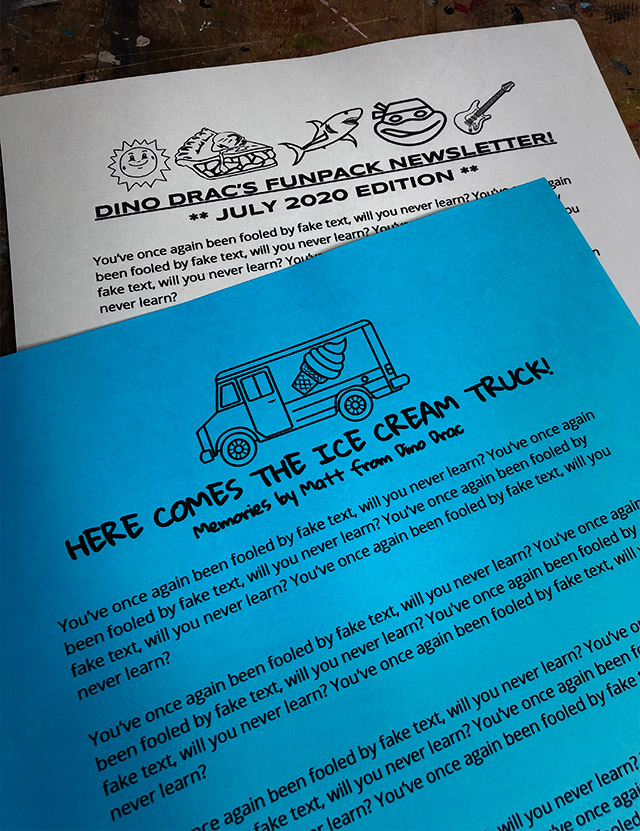 DINO DRAC'S FUNPACK NEWSLETTER!
** JULY 2020 EDITION **
You've once again been fooled by fake text, will you never learn? You've once again
been fooled by fake text, will you never learn? You've
fake text, will you never learn? You've you
never learn?
HERE COMES THE ICE CREAM TRUCK!
Memories by Matt from Dino Drac
You've once again been fooled by fake text, will you never learn? You've once again
been fooled by fake text, will you never learn? You've once again been fooled by
fake text, will you never learn? You've once again been fooled by fake text, will you
never learn?
You've once again been fooled by fake text, will you never learn? You've once again
been fooled by fake text, will you never learn? You've once again been fooled by
fake text, will you never learn? You've once again been fooled by fake text, will
never learn?
You've once again been fooled by fake text, will you never learn? You've
been fooled by fake text, will you never learn? You've once again been
fake text, will you never learn? You've once again been fooled by fake
never learn?
once again been fooled by fake text, will you never learn?
by fake text, will you never learn? You've once
will you never learn? You've once again